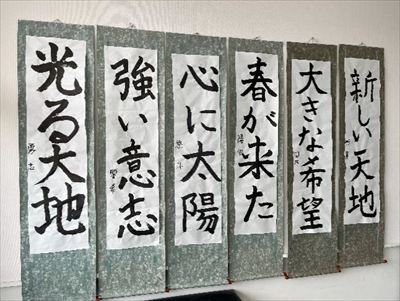 新しい天地
大きな希望
春が来た
心に太陽
強い意志
光る大地